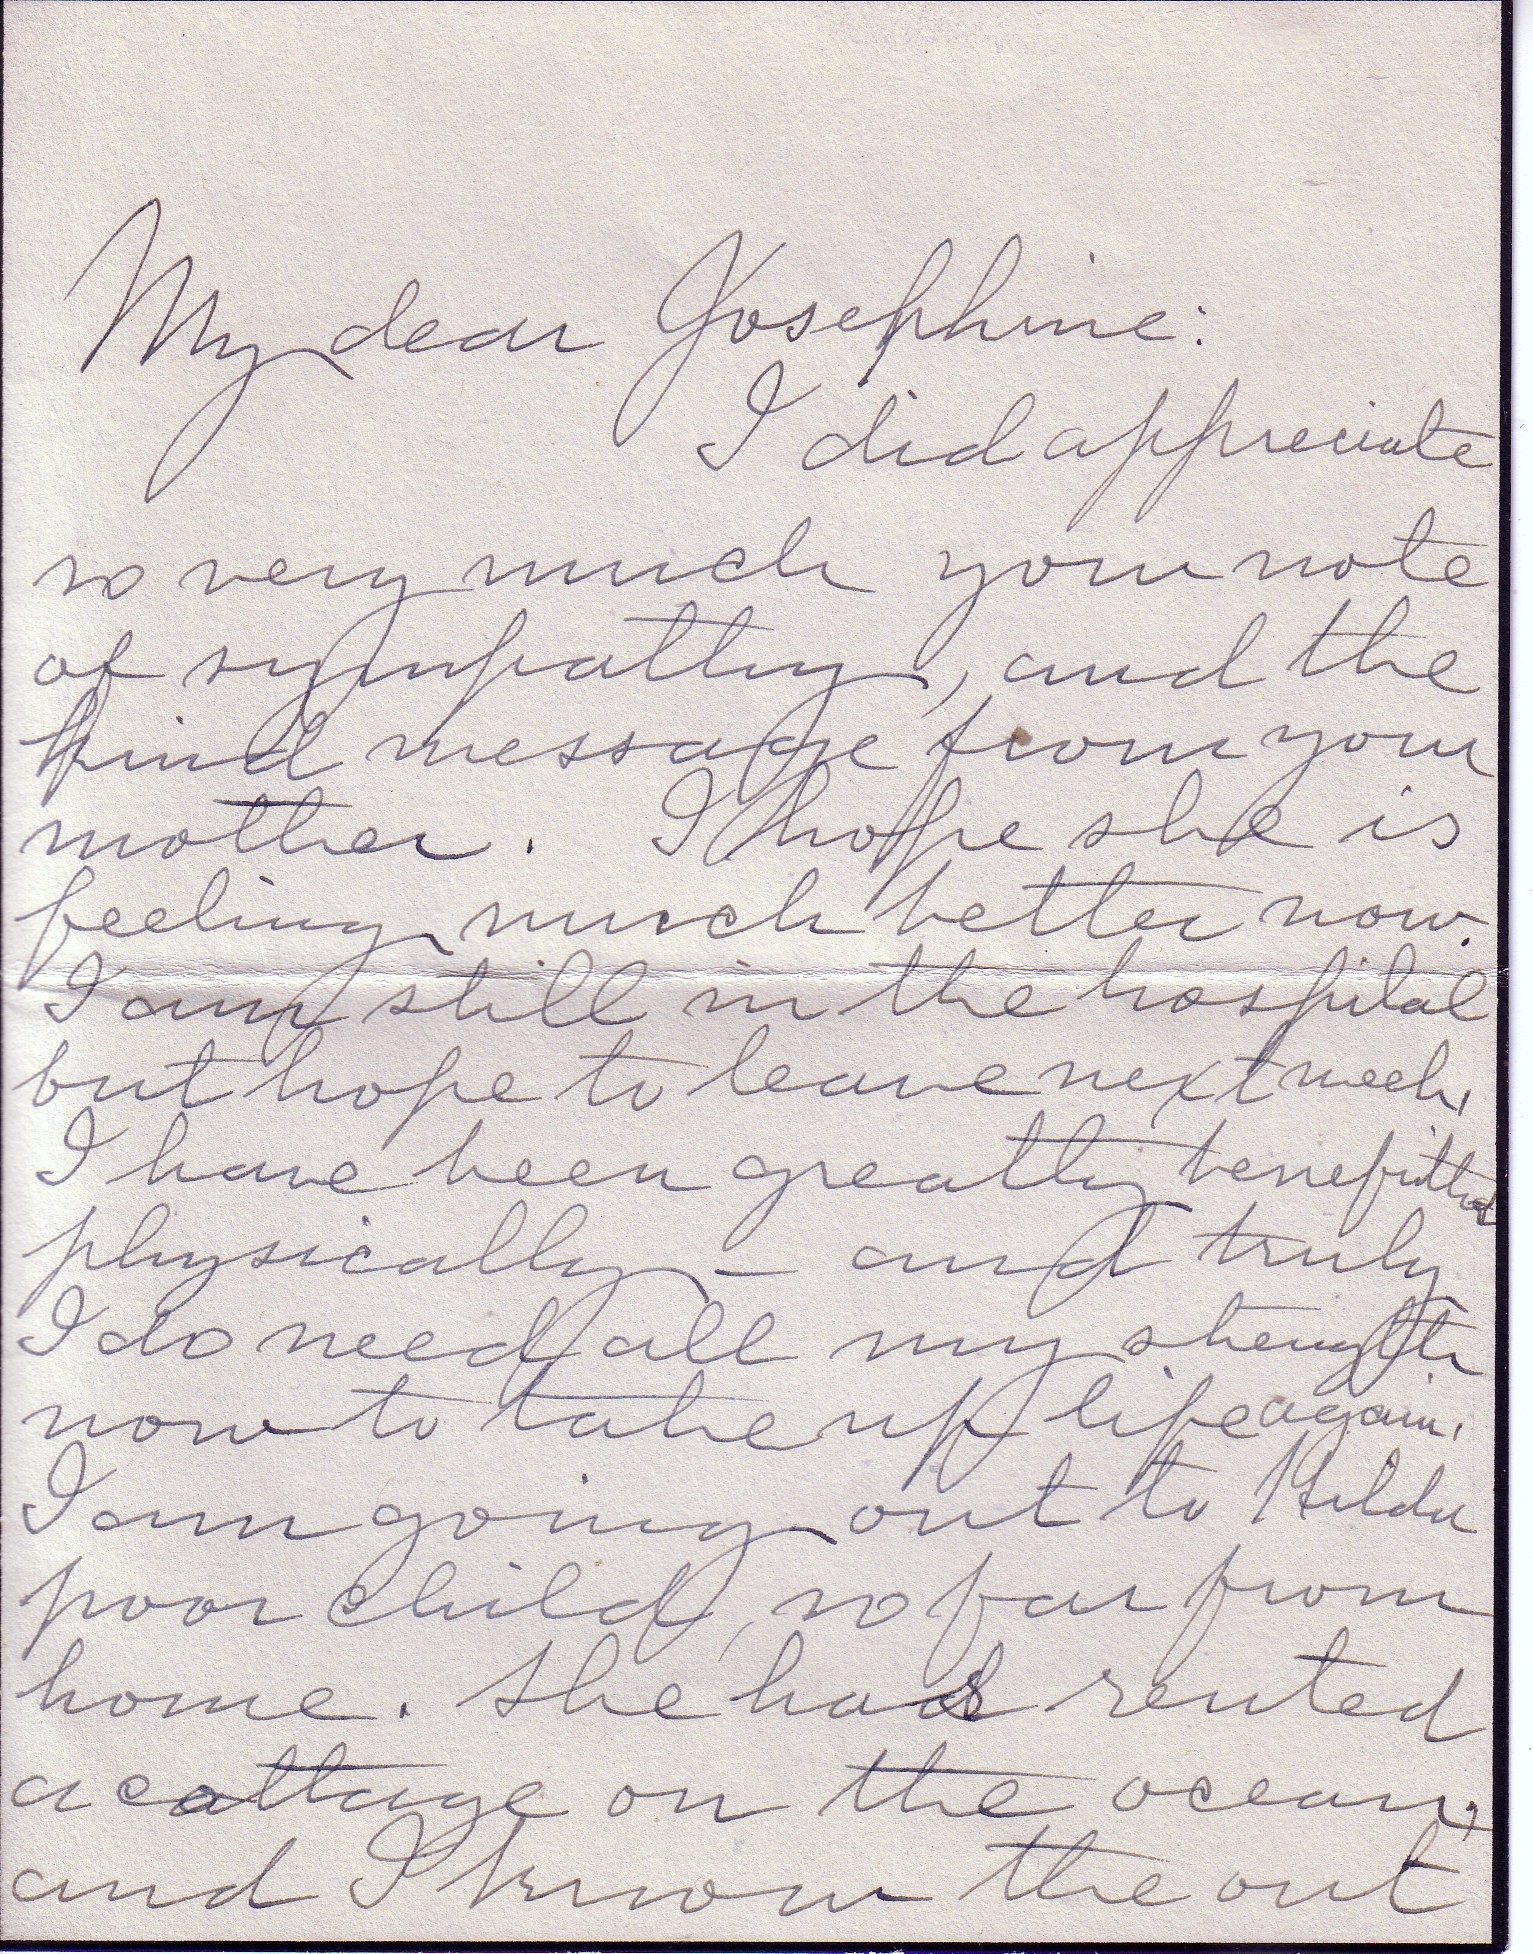 My dear Josephine:
I did appreciate
so very much your note
of sympathy, and the
kind message from your
mother. I hope she is
feeling much better now.
I am still in the hospital
but hope to leave next week.
I have been greatly benefitted
physically – and truly
I do need all my strength
now to take up life again.
I am going out to Hilda
poor child, so far from
home. She has rented
a cottage on the ocean,
and I know the out